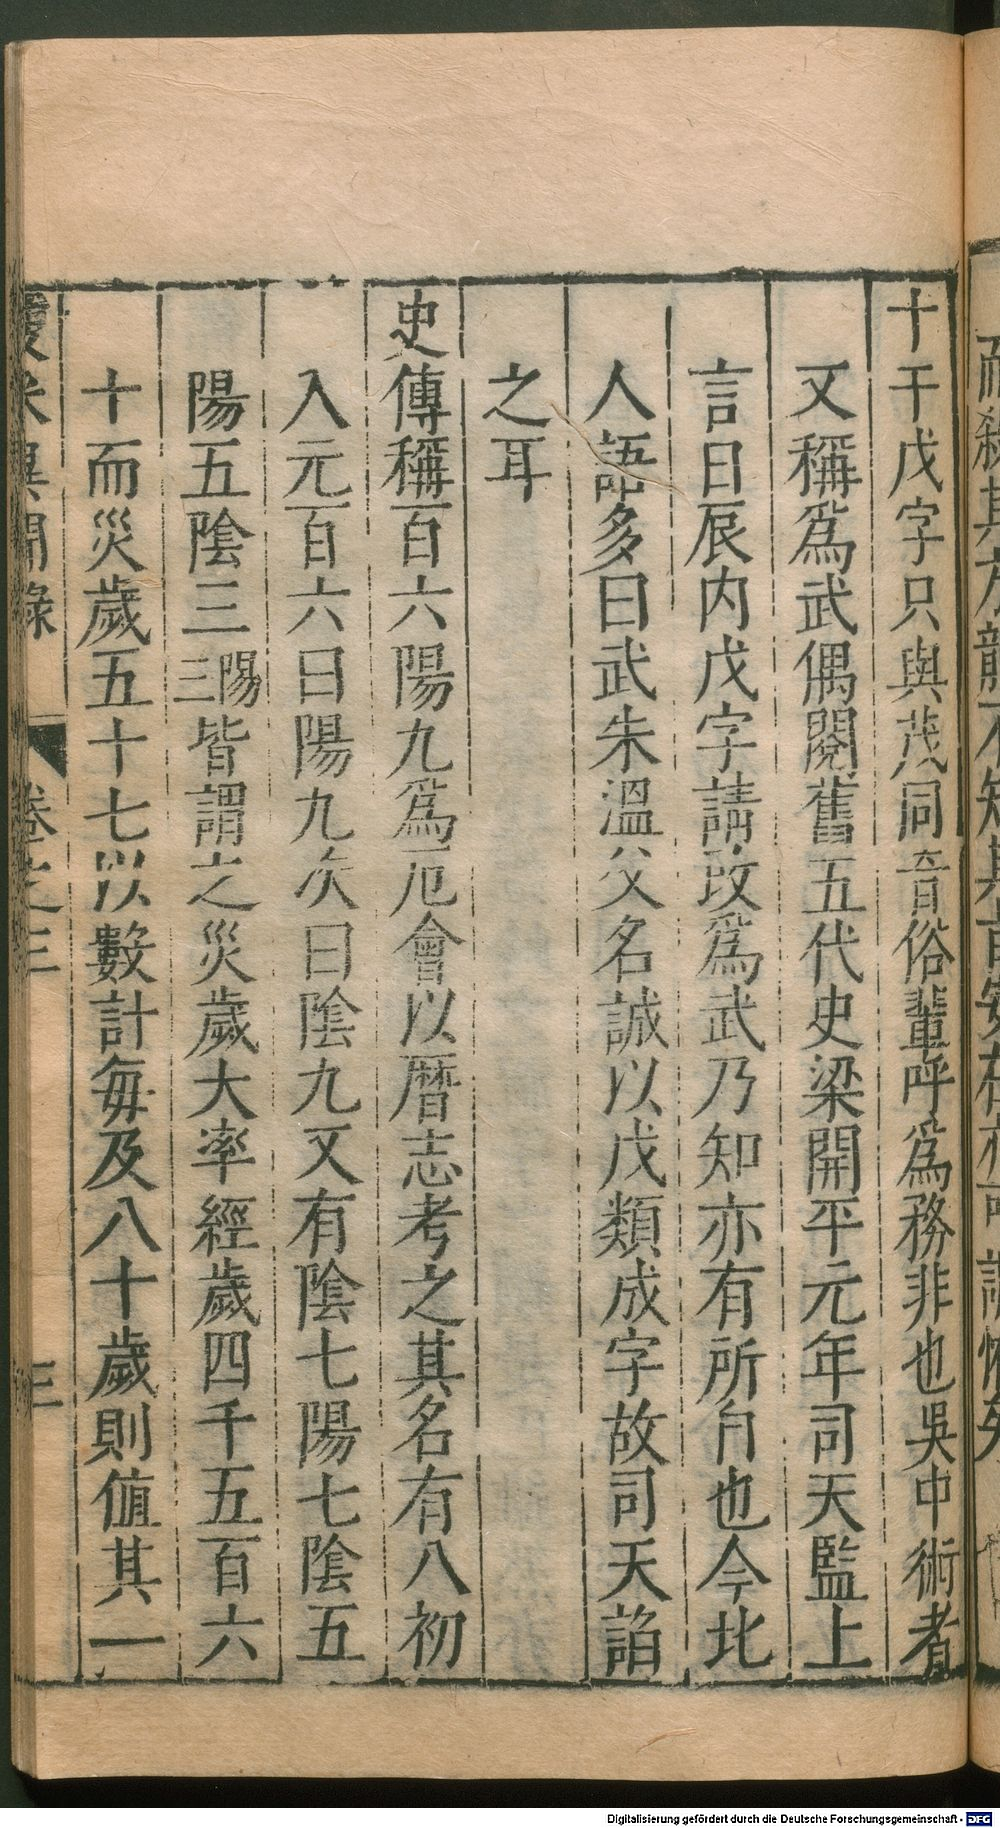 十干戊字只與茂同音俗輩呼爲務非也吳中術者
又稱爲武偶閱舊五代史梁開平元年司天監上
言日辰内戊字請改爲武乃知亦有所自也今北
人語多曰武朱溫父名誠以戊類成字故司天諂
之耳
史傳稱百六陽九爲厄會以曆志考之其名有八初
入元百六曰陽九次曰陰九又有陰七陽七陰五
陽五陰三陽三皆謂之災歲大率經歲四千五百六
十而災歲五十七以數計每及八十歲則值其一
卷之三
三
Digitalisierung gefördert durch die Deutsche Forschungsgemeinschaft - DFG